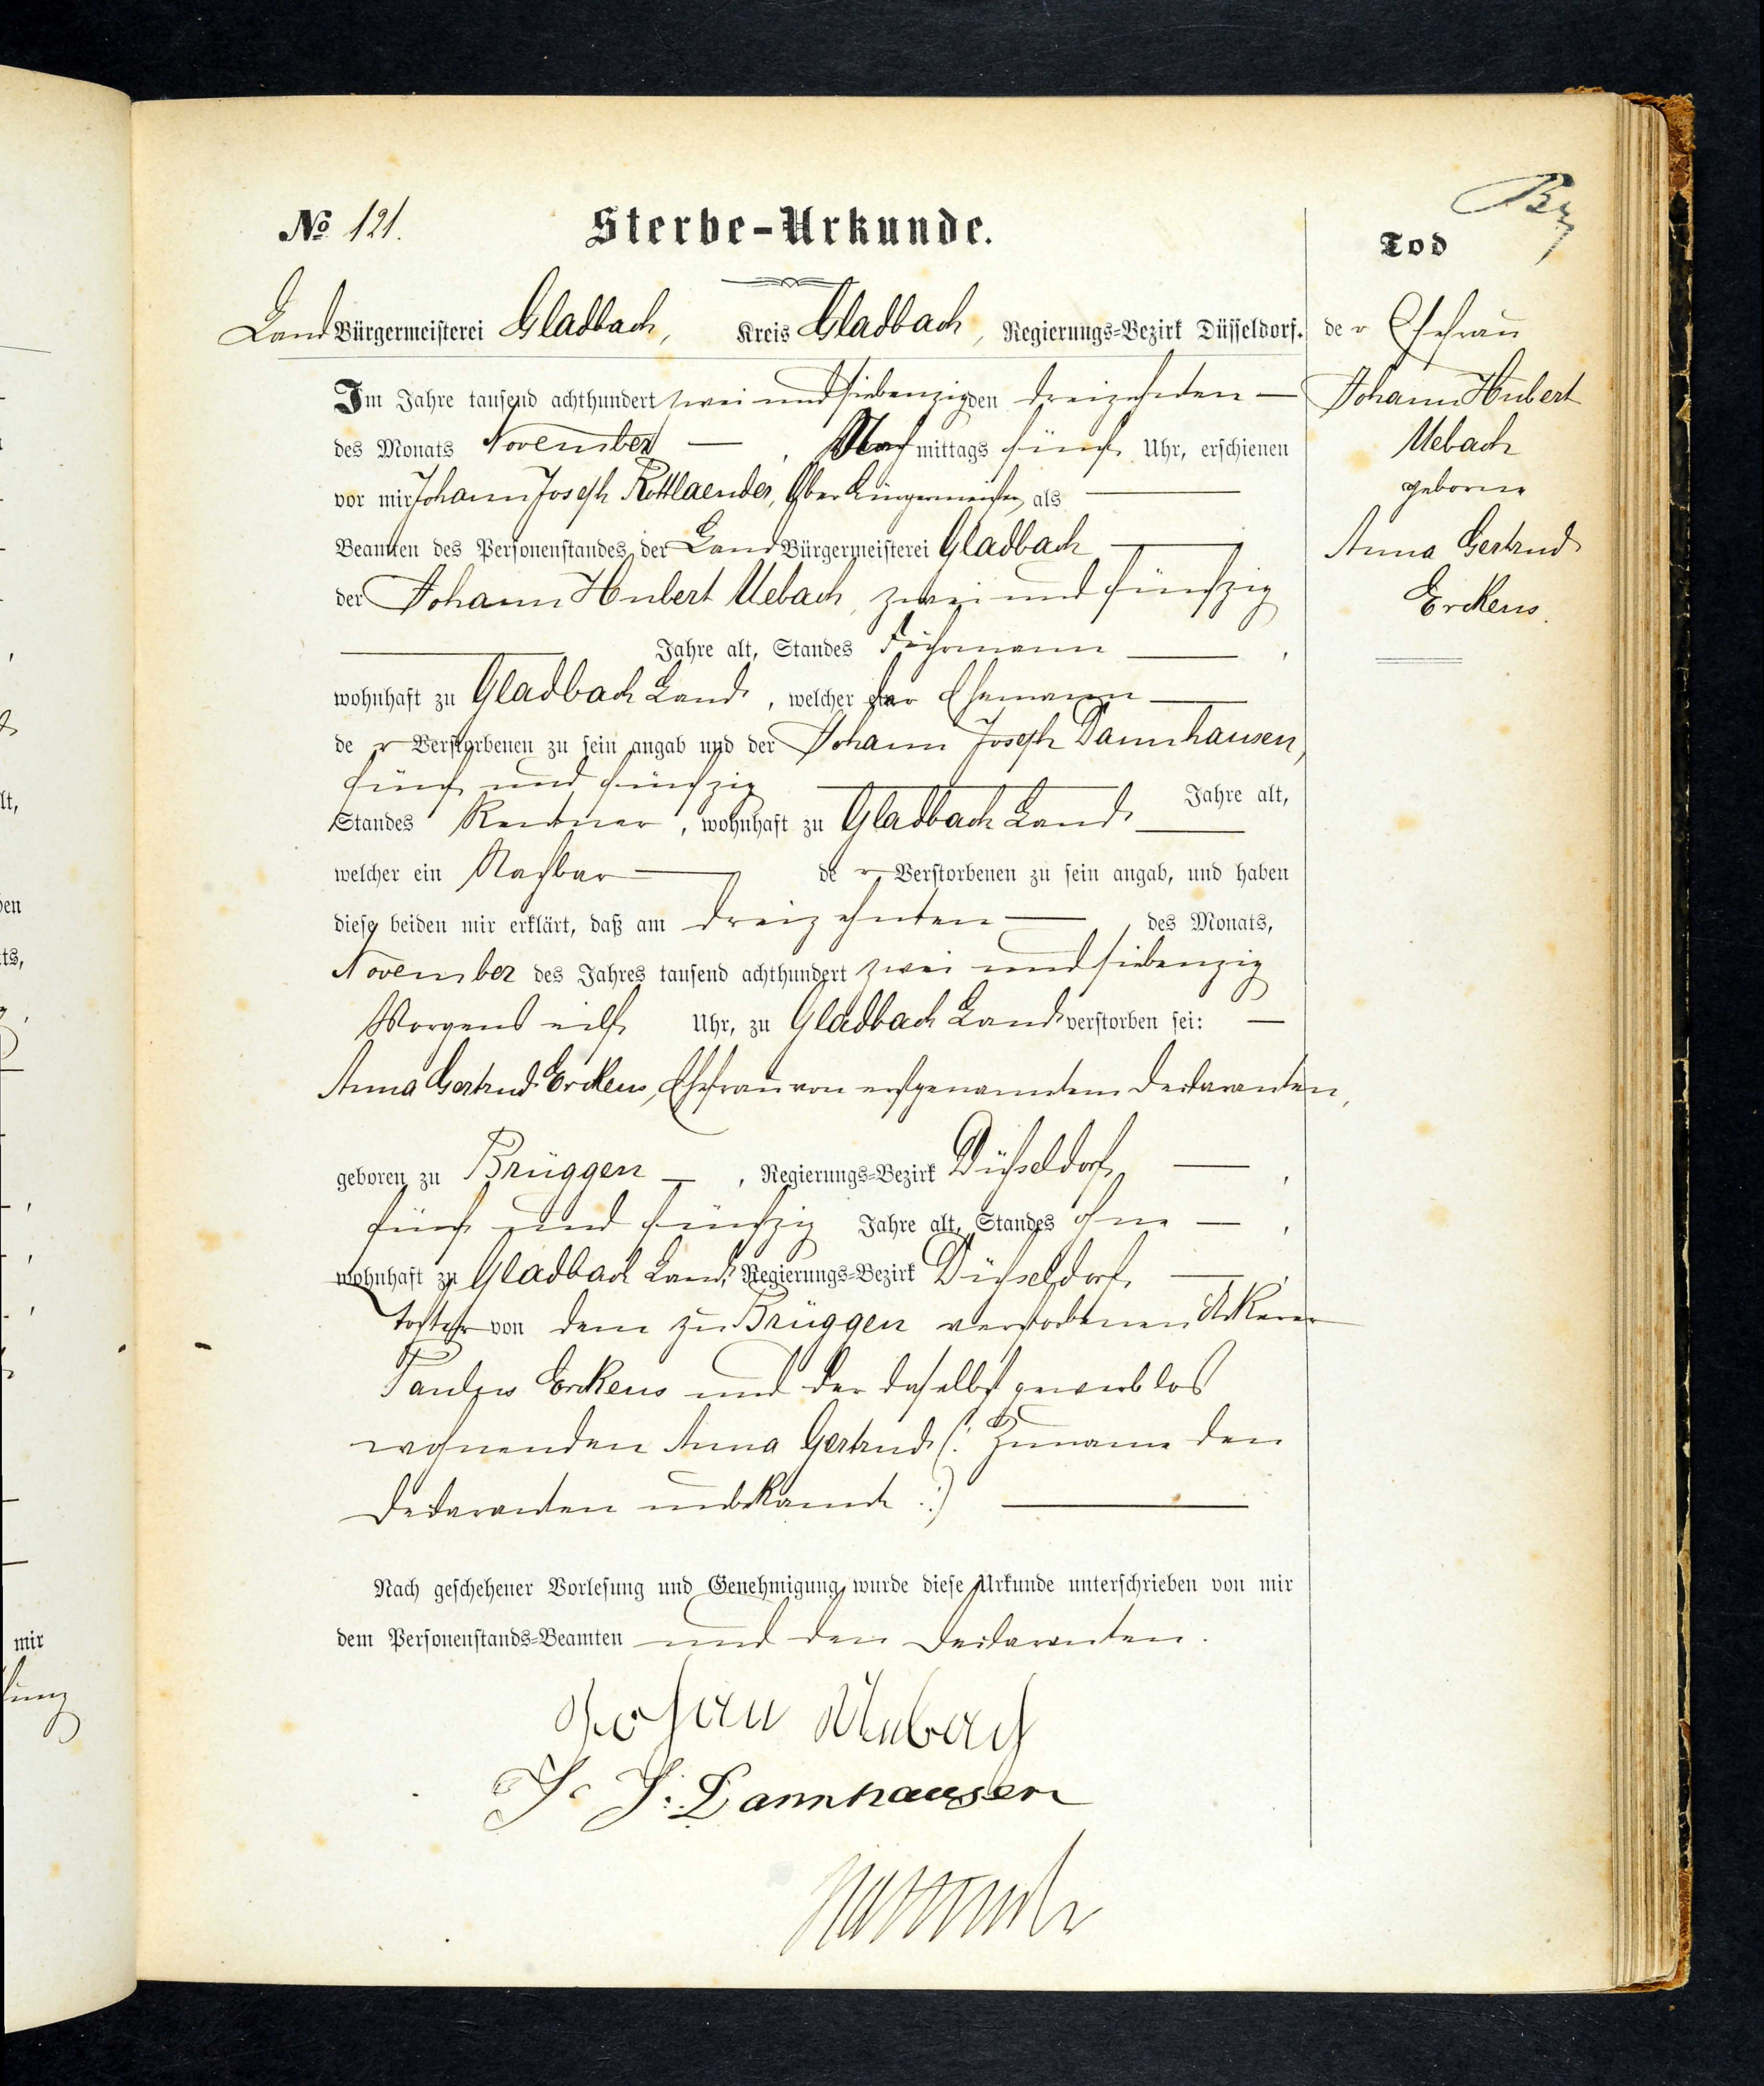 № 121.
Sterbe-Urkunde.
Land Bürgermeisterei Gladbach, Kreis Gladbach, Regierungs-Bezirk Düsseldorf.
Im Jahre tausend achthundert zwei und siebenzig den dreizehnten
des Monats November, Nachmittags fünf Uhr, erschienen
vor mir Johann Joseph Rottlaender, Oberbürgermeister, als
Beamten des Personenstandes der Land Bürgermeisterei Gladbach
der Johann Hubert Uebach, zwei und fünfzig
Jahre alt, Standes Fuhrmann,
wohnhaft zu Gladbach Land, welcher der Ehemann
der Verstorbenen zu sein angab und der Johann Joseph Dannhausen,
fünf und fünfzig Jahre alt,
Standes Rentner, wohnhaft zu Gladbach Land
welcher ein Nachbar der Verstorbenen zu sein angab, und haben
diese beiden mir erklärt, daß am dreizehnten des Monats,
November des Jahres tausend achthundert zwei und siebenzig
Morgens eilf Uhr, zu Gladbach Land verstorben sei:
Anna Gertrud Erckens, Ehefrau von erstgenanntem Declaranten,
geboren zu Brüggen, Regierungs-Bezirk Düsseldorf,
fünf und fünfzig Jahre alt, Standes ohne,
wohnhaft zu Gladbach Land, Regierungs-Bezirk Düsseldorf,
Tochter von dem zu Brüggen verstorbenen Ackerer
Erckens und der daselbst gewerblos
wohnenden Anna Gertrud (: Zuname den
Declaranten unbekannt :)
Nach geschehener Vorlesung und Genehmigung wurde diese Urkunde unterschrieben von mir
dem Personenstands-Beamten und den Declaranten.
Johan Uebach
J. J. Dannhausen
Tod
der Ehefrau
Johann Hubert
Uebach
geborne
Anna Gertrud
Erckens.
lt,
en
ts,
mir